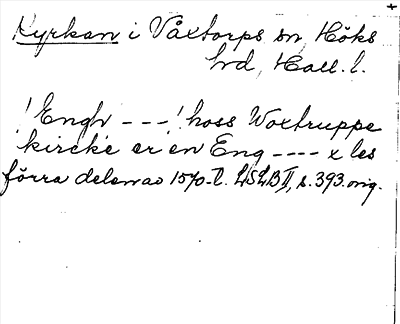 Kyrkan i Våxtorps sn, Höks
hrd, Hall. l.
! Engh ---! hoss Woxtruppe
kircke er en Eng ---- x les
förra delen av 1570-t. LSLB II, s. 393. orig.